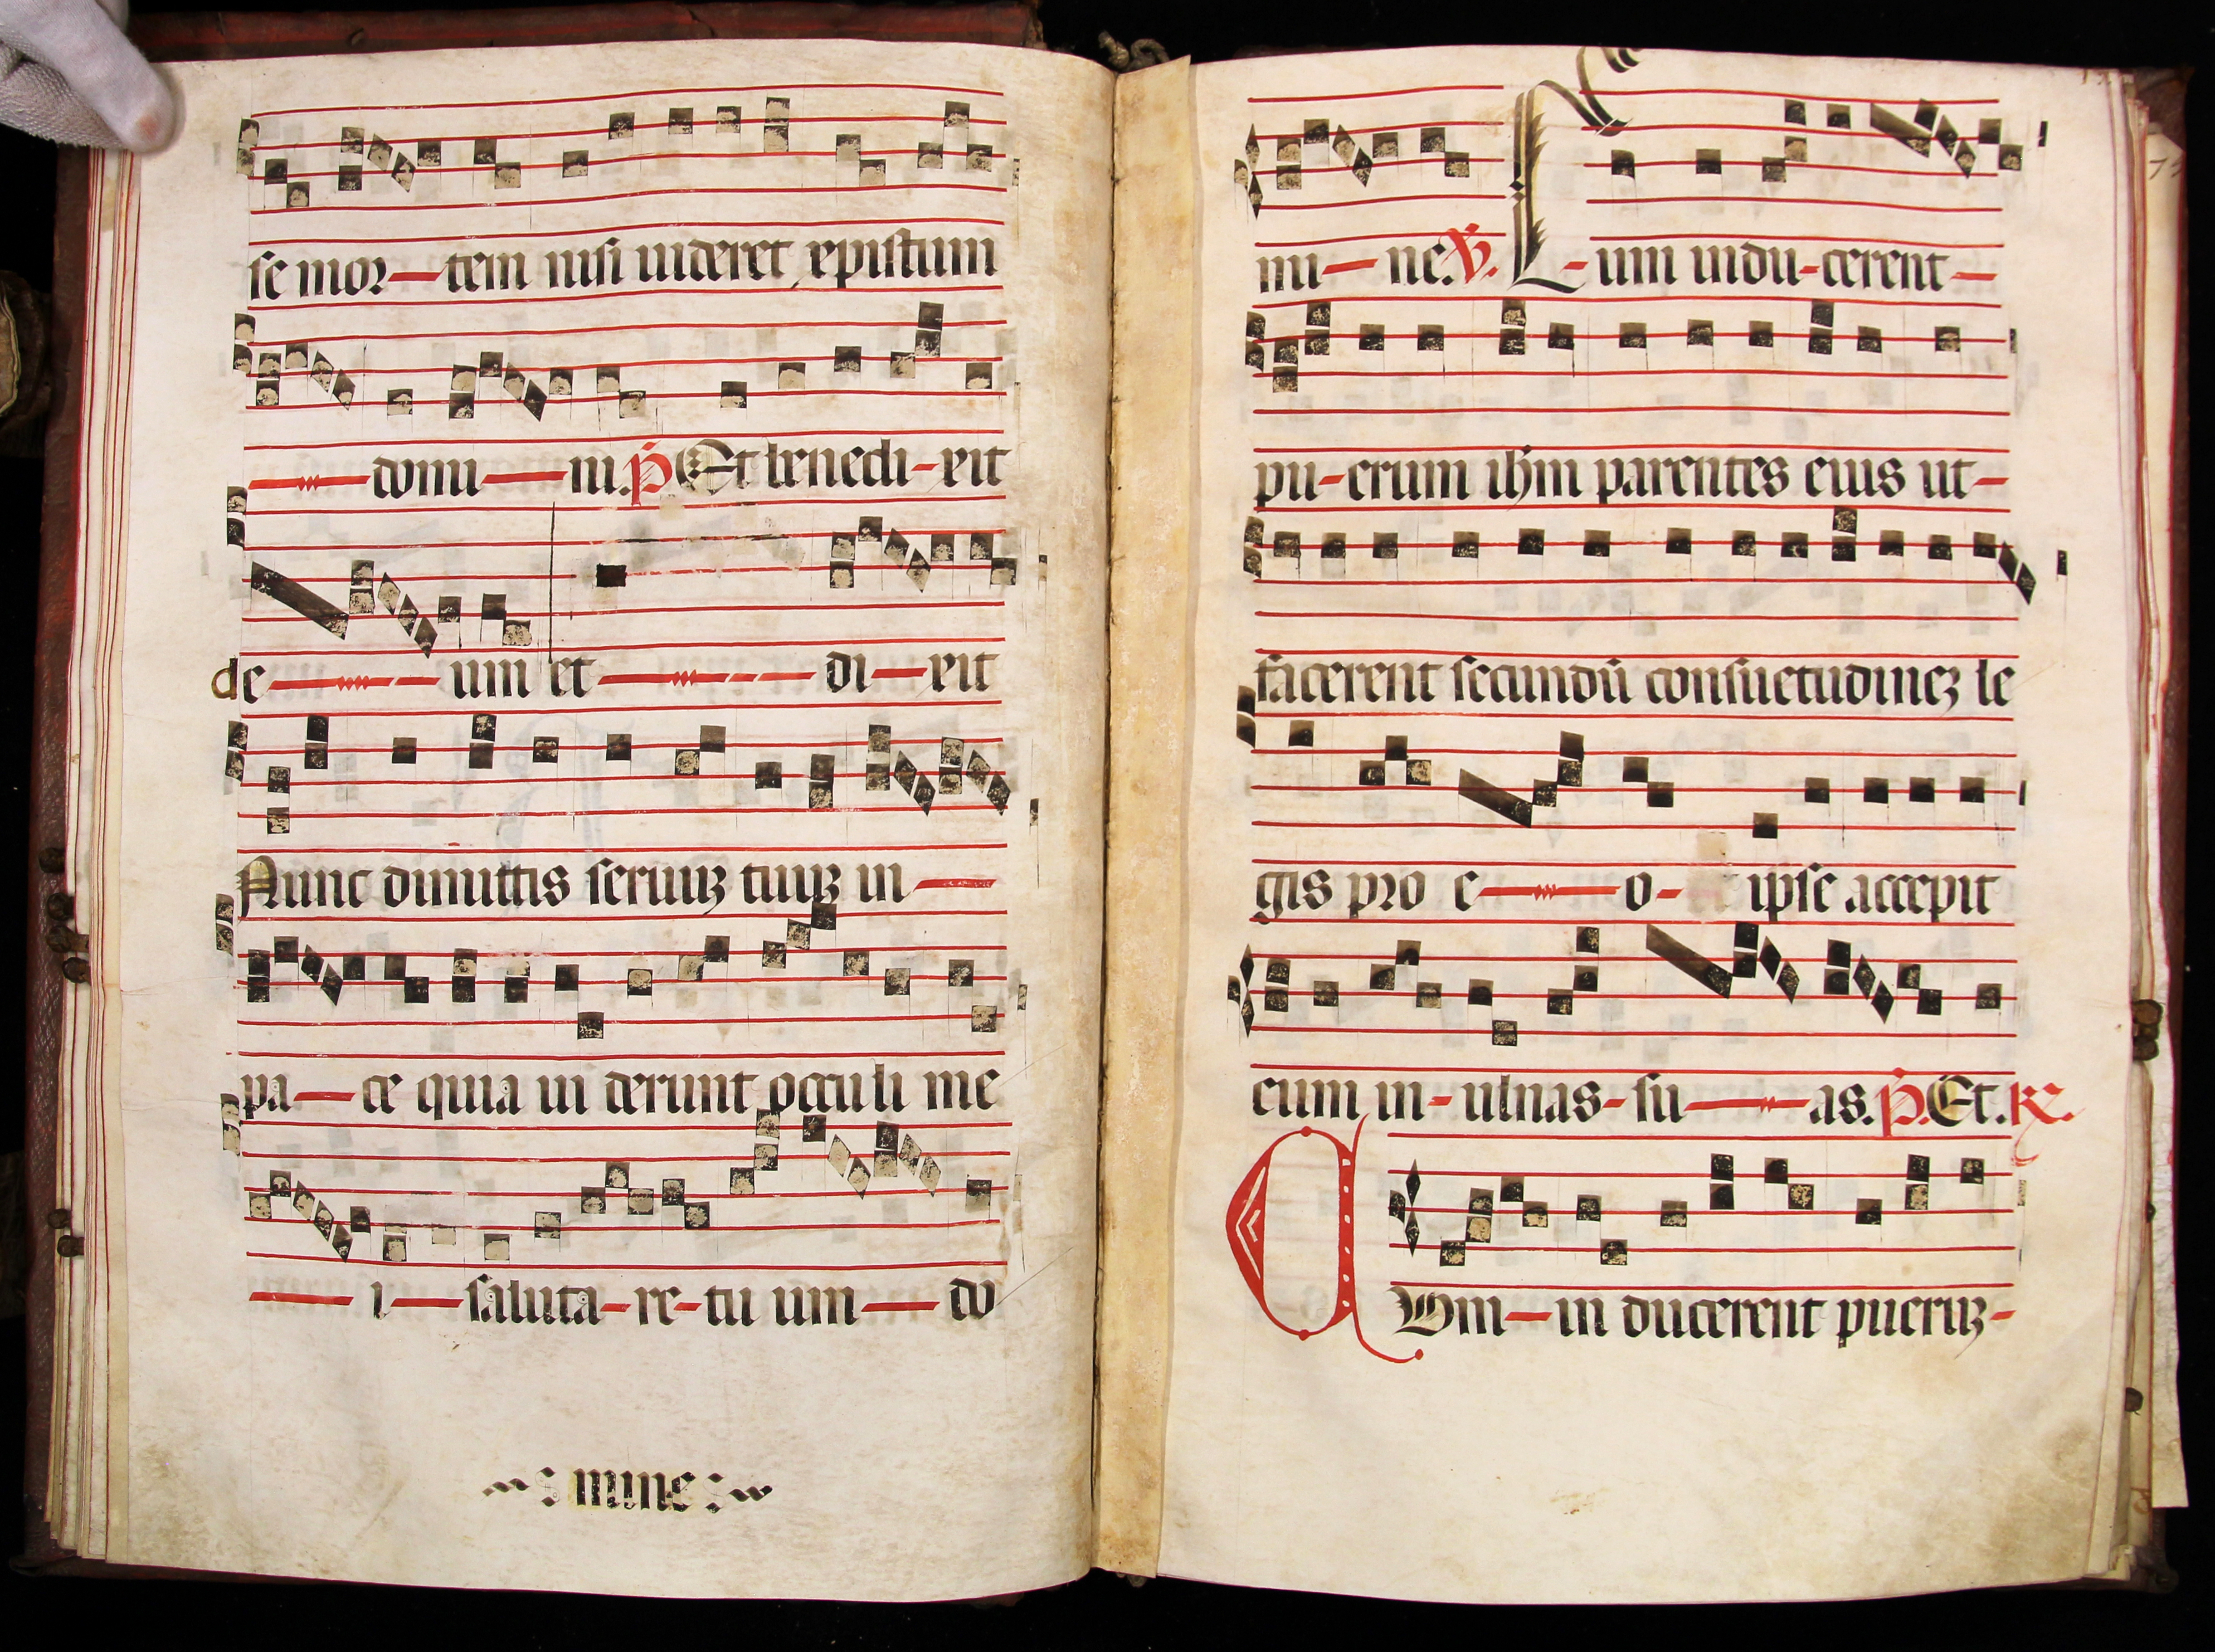 se mor-tem nisi uideret xpistum
domi-ni. P Et benedi-xit
de-um et-di-xit
Nunc dimittis seruuz tuuz in
pa-ce quia ui derunt occuli me
i-saluta-re-tu um-do
mine
mi-ne. V. C-um indu-cerent-
pu-erum ihm parentes eius ut-
facerent secundū consuetudinez le
gis pro e-o- ipse accepit
eum in-ulnas-su-as. P. Et. R
Um-in ducerent pueruz-